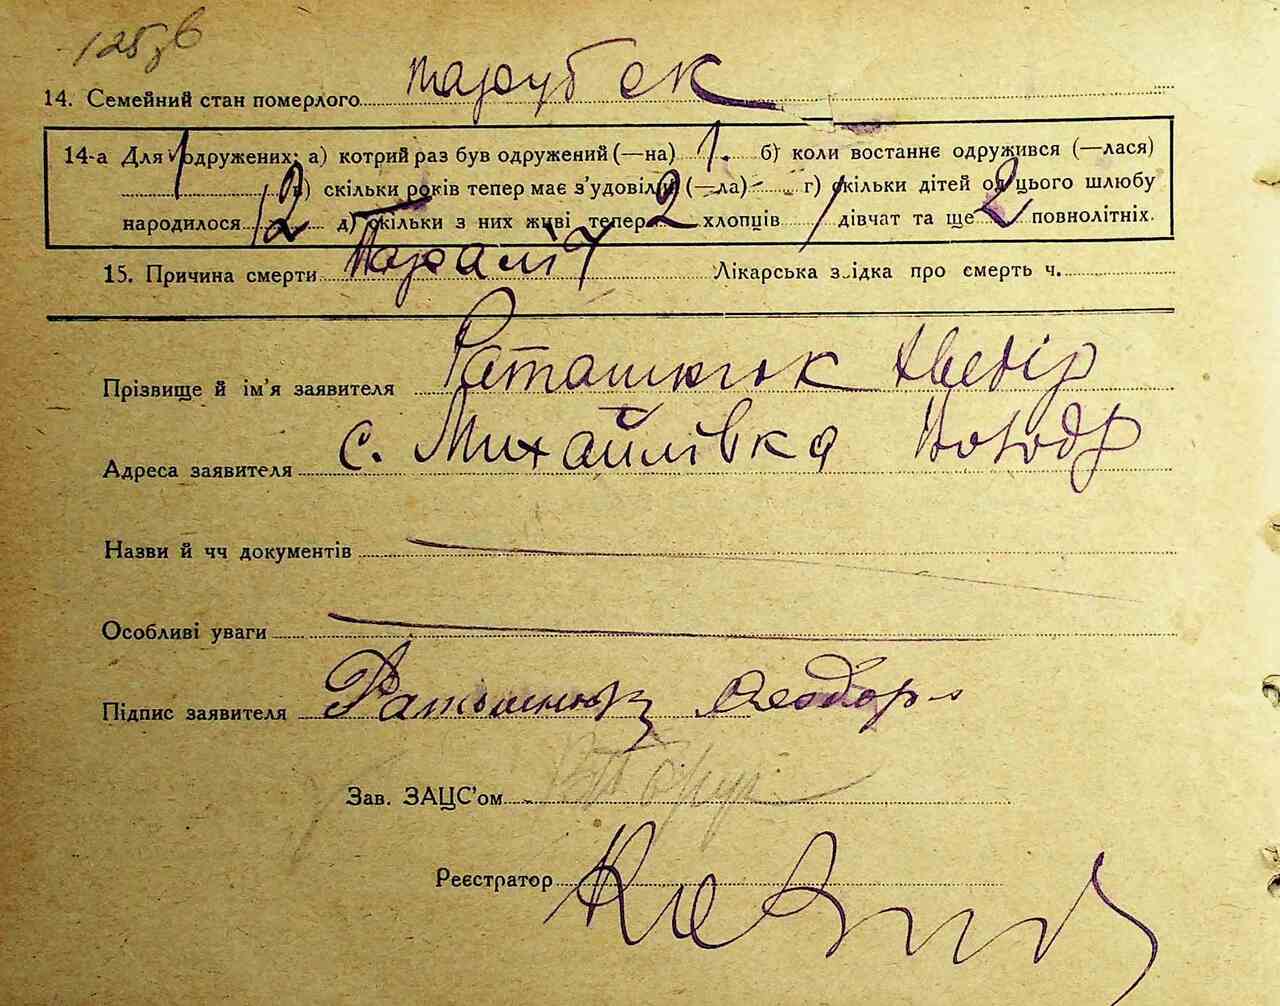 125зв
14. Семейний стан померлого
14-а Для одружених: а) котрий раз був одружений (—на) 1. б) коли востаннє одружився (—лася)
в) скільки років тепер має з’удовіл (—ла) г) скільки дітей од цього шлюбу
народилося 2 д) скільки з них живі тепер 2 хлопців 1 дівчат та ще 2 повнолітніх.
15. Причина смерти Параліч Лікарська з ідка про смерть ч.
Прізвище й ім’я заявителя Раташнюк
Адреса заявителя с. Михайлівка
Назви й чч документів
Особливі уваги
Підпис заявителя Раташнюк Феодор
Зав. ЗАЦС’ом
Реєстратор